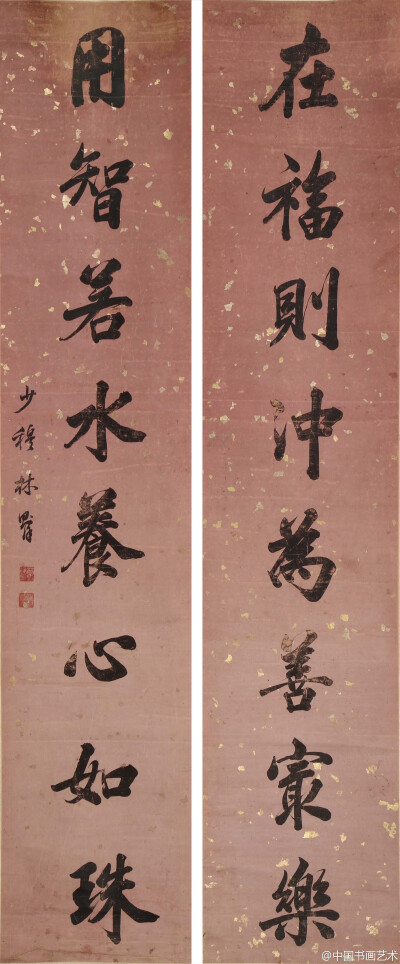 在福則沖為善寂樂
用智若水養心如珠
少穆林
@中国书画艺术